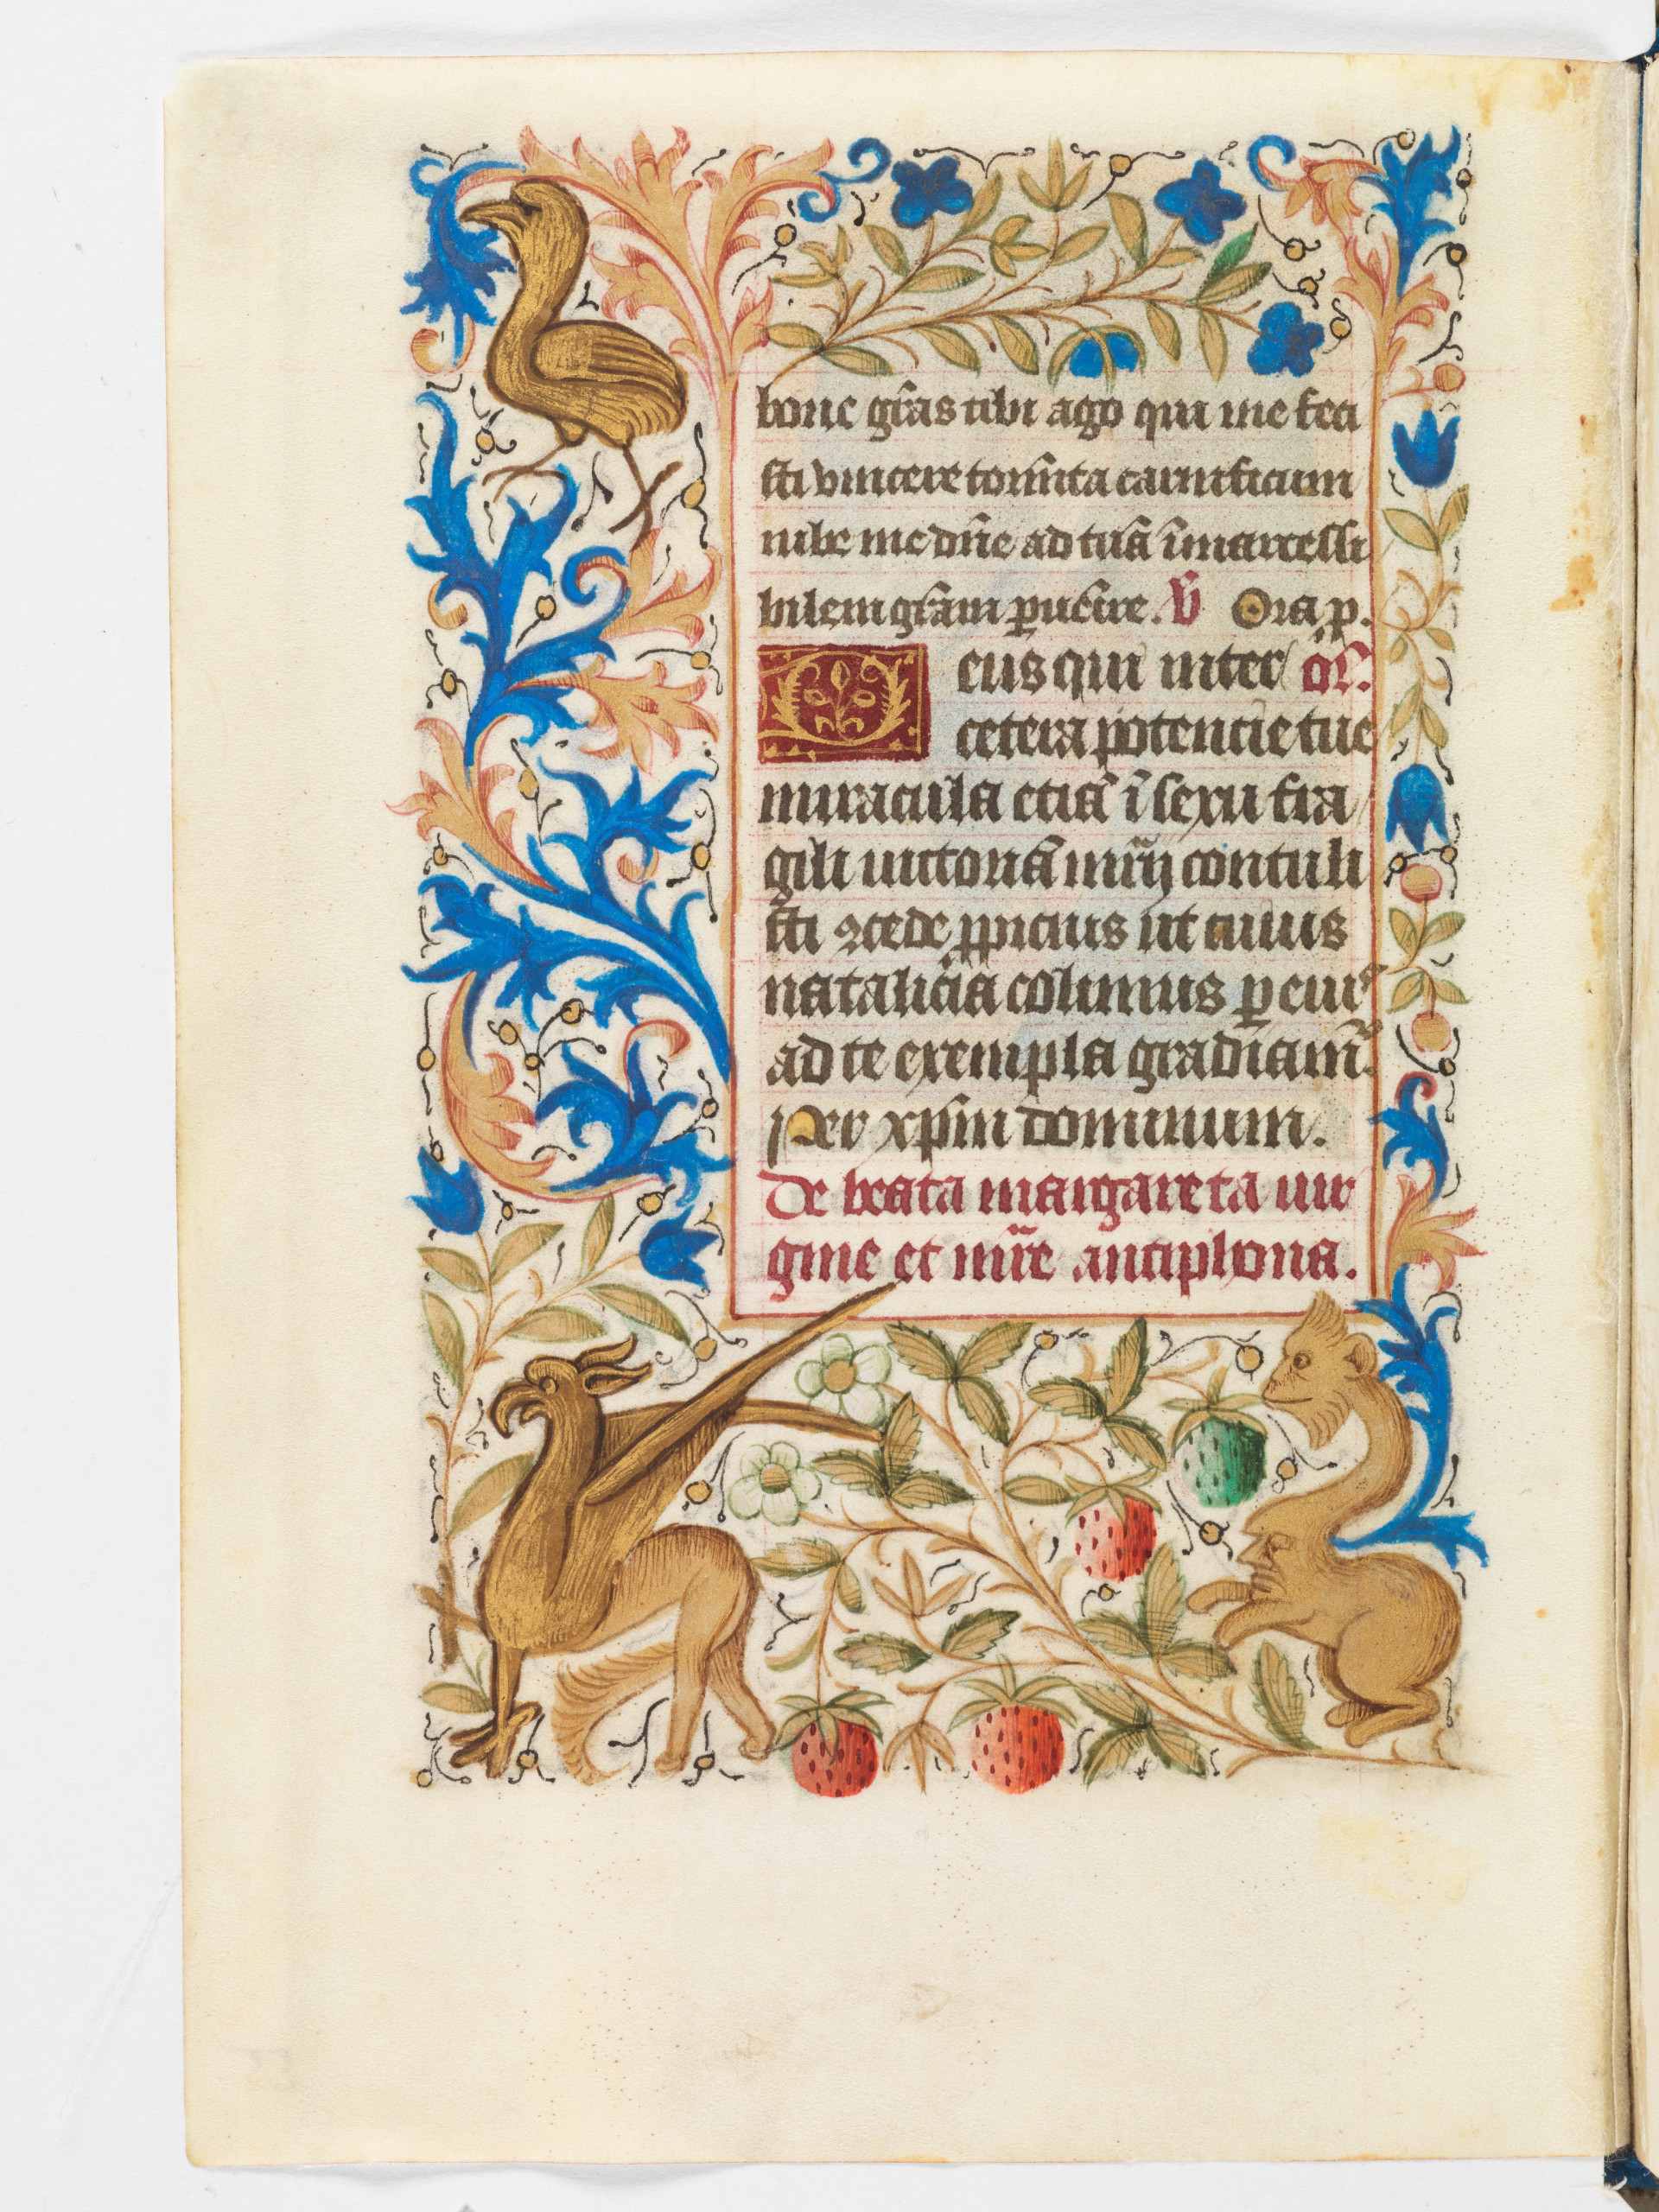 bone gr̄as tibi ago qui me feci
sti vincere tormīta carnificum
iube me dn̄e ad tuā īmarcessi
bilem glr̄iam ꝑuēire. V̄ Ora p.
Deus qui inter or̄.
cetera potencie tue
miracula etiā ī sexu fra
gili uictoriā mr̄ij contuli
sti ꝯcede ꝓpicius ut cuius
natalicia colimus ꝑ eius
ad te exempla gradiam̄.
Per xp̄m dominum.
De beata margareta uir
gine et mr̄e antiphona.